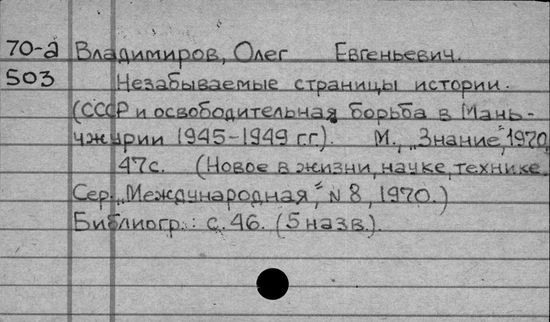 70-2 Владимиров, Олег Евгеньевич.
503 Незабываемые страницы истории.
(СССР и освободительная борьба в Мань-
чжурии 1945-1949 г.г.). М., „Знание", 1970,
47с. (Новое в жизни, науке, технике.
Сер. „Международная", N 8, 1970.)
Библиогр.: с. 46. (5 назв.).